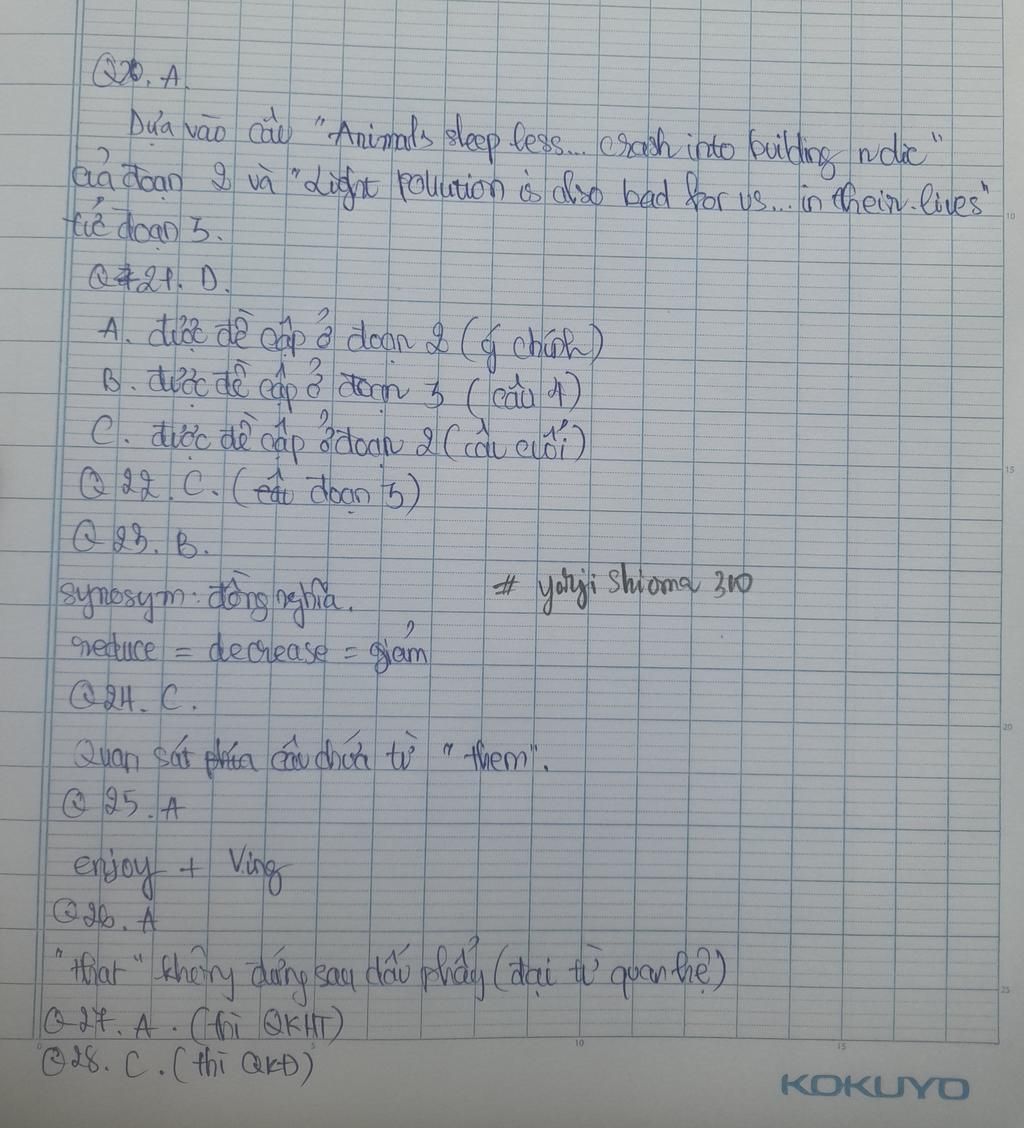 Q20. A.
Dựa vào câu "Animals sleep less... crash into building
của đoạn 2 và "Light pollution is also bad for us... in their lives"
từ đoạn 3.
Q21. D.
A. được đề cập ở đoạn 2 (ý chính)
B. được đề cập ở đoạn 3 (câu 4)
C. được đề cập ở đoạn 2 (câu cuối)
Q 22. C. ( đoạn 3)
Q 23. B.
synosym: đồng nghĩa.
# yorji Shioma 310
reduce = decrease = giảm
Q24. C.
Quan sát phía câu chứa từ "them".
Q 25. A
enjoy + Ving
Q26. A
"that" không đứng sau dấu phẩy (đại từ quan hệ)
Q 27. A. (thì QKHT)
Q 28. C. (thì QKĐ)
KOKUYO
10
15
20
25
0
5
10
15